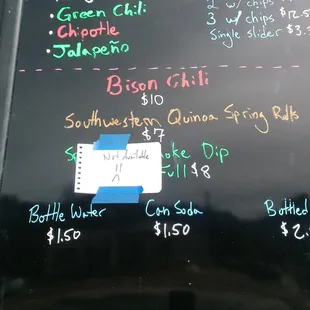 • Green Chili
• Chipotle
• Jalapeño
2 w/ chips
3 w/ chips $12.5
Single slider $3.
Bison Chili
$10
Southwestern Quinoa Spring Rolls
$7
Not Available
oke Dip
Full $8
Bottle Water
$1.50
Can Soda
$1.50
Bottled
$2.